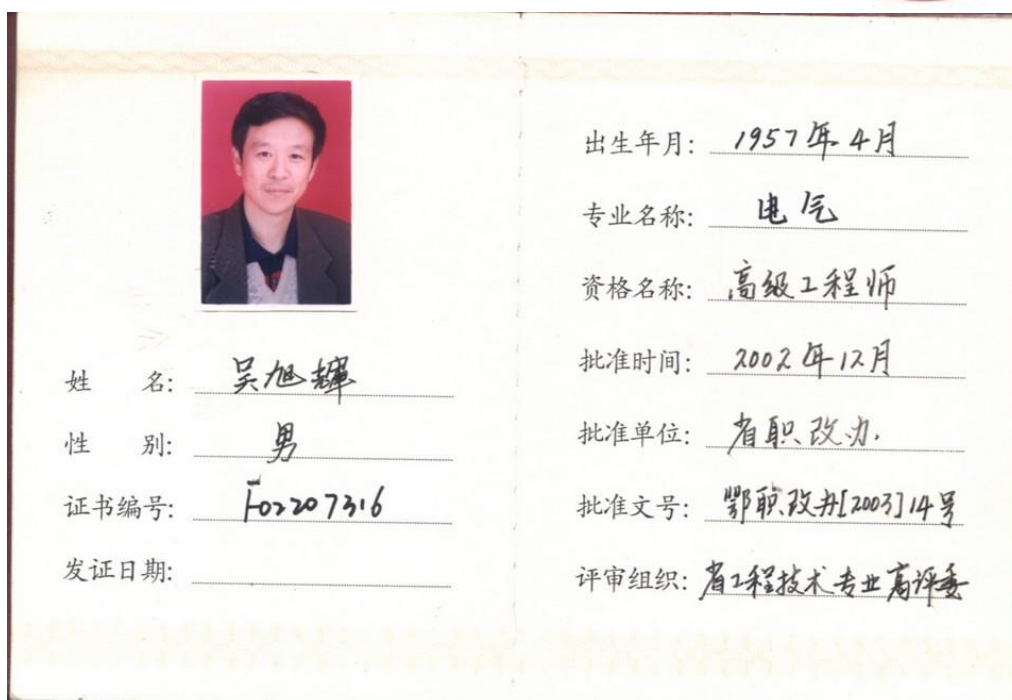 姓 名: 吴旭辉
性 别: 男
证书编号: F02207316
发证日期:
出生年月: 1957年4月
专业名称: 电气
资格名称: 高级工程师
批准时间: 2002年12月
批准单位: 省职改办.
批准文号: 鄂职改办[2003]14号
评审组织: 省工程技术专业高评委